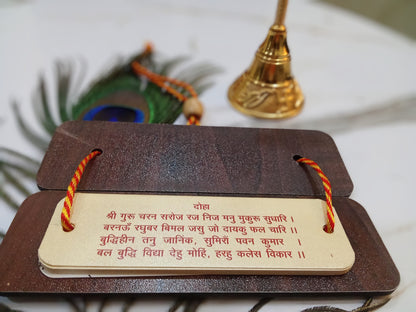 दोहा
श्री गुरू चरन सरोज रज निज मनु मुकुरु सुधारि ।
बरनऊँ रघुबर बिमल जसु जो दायकु फल चारि ।।
बुद्धिहीन तनु जानिके, सुमिरौं पवन कुमार ।
बल बुद्धि विद्या देहु मोहिं, हरहु कलेस विकार ।।